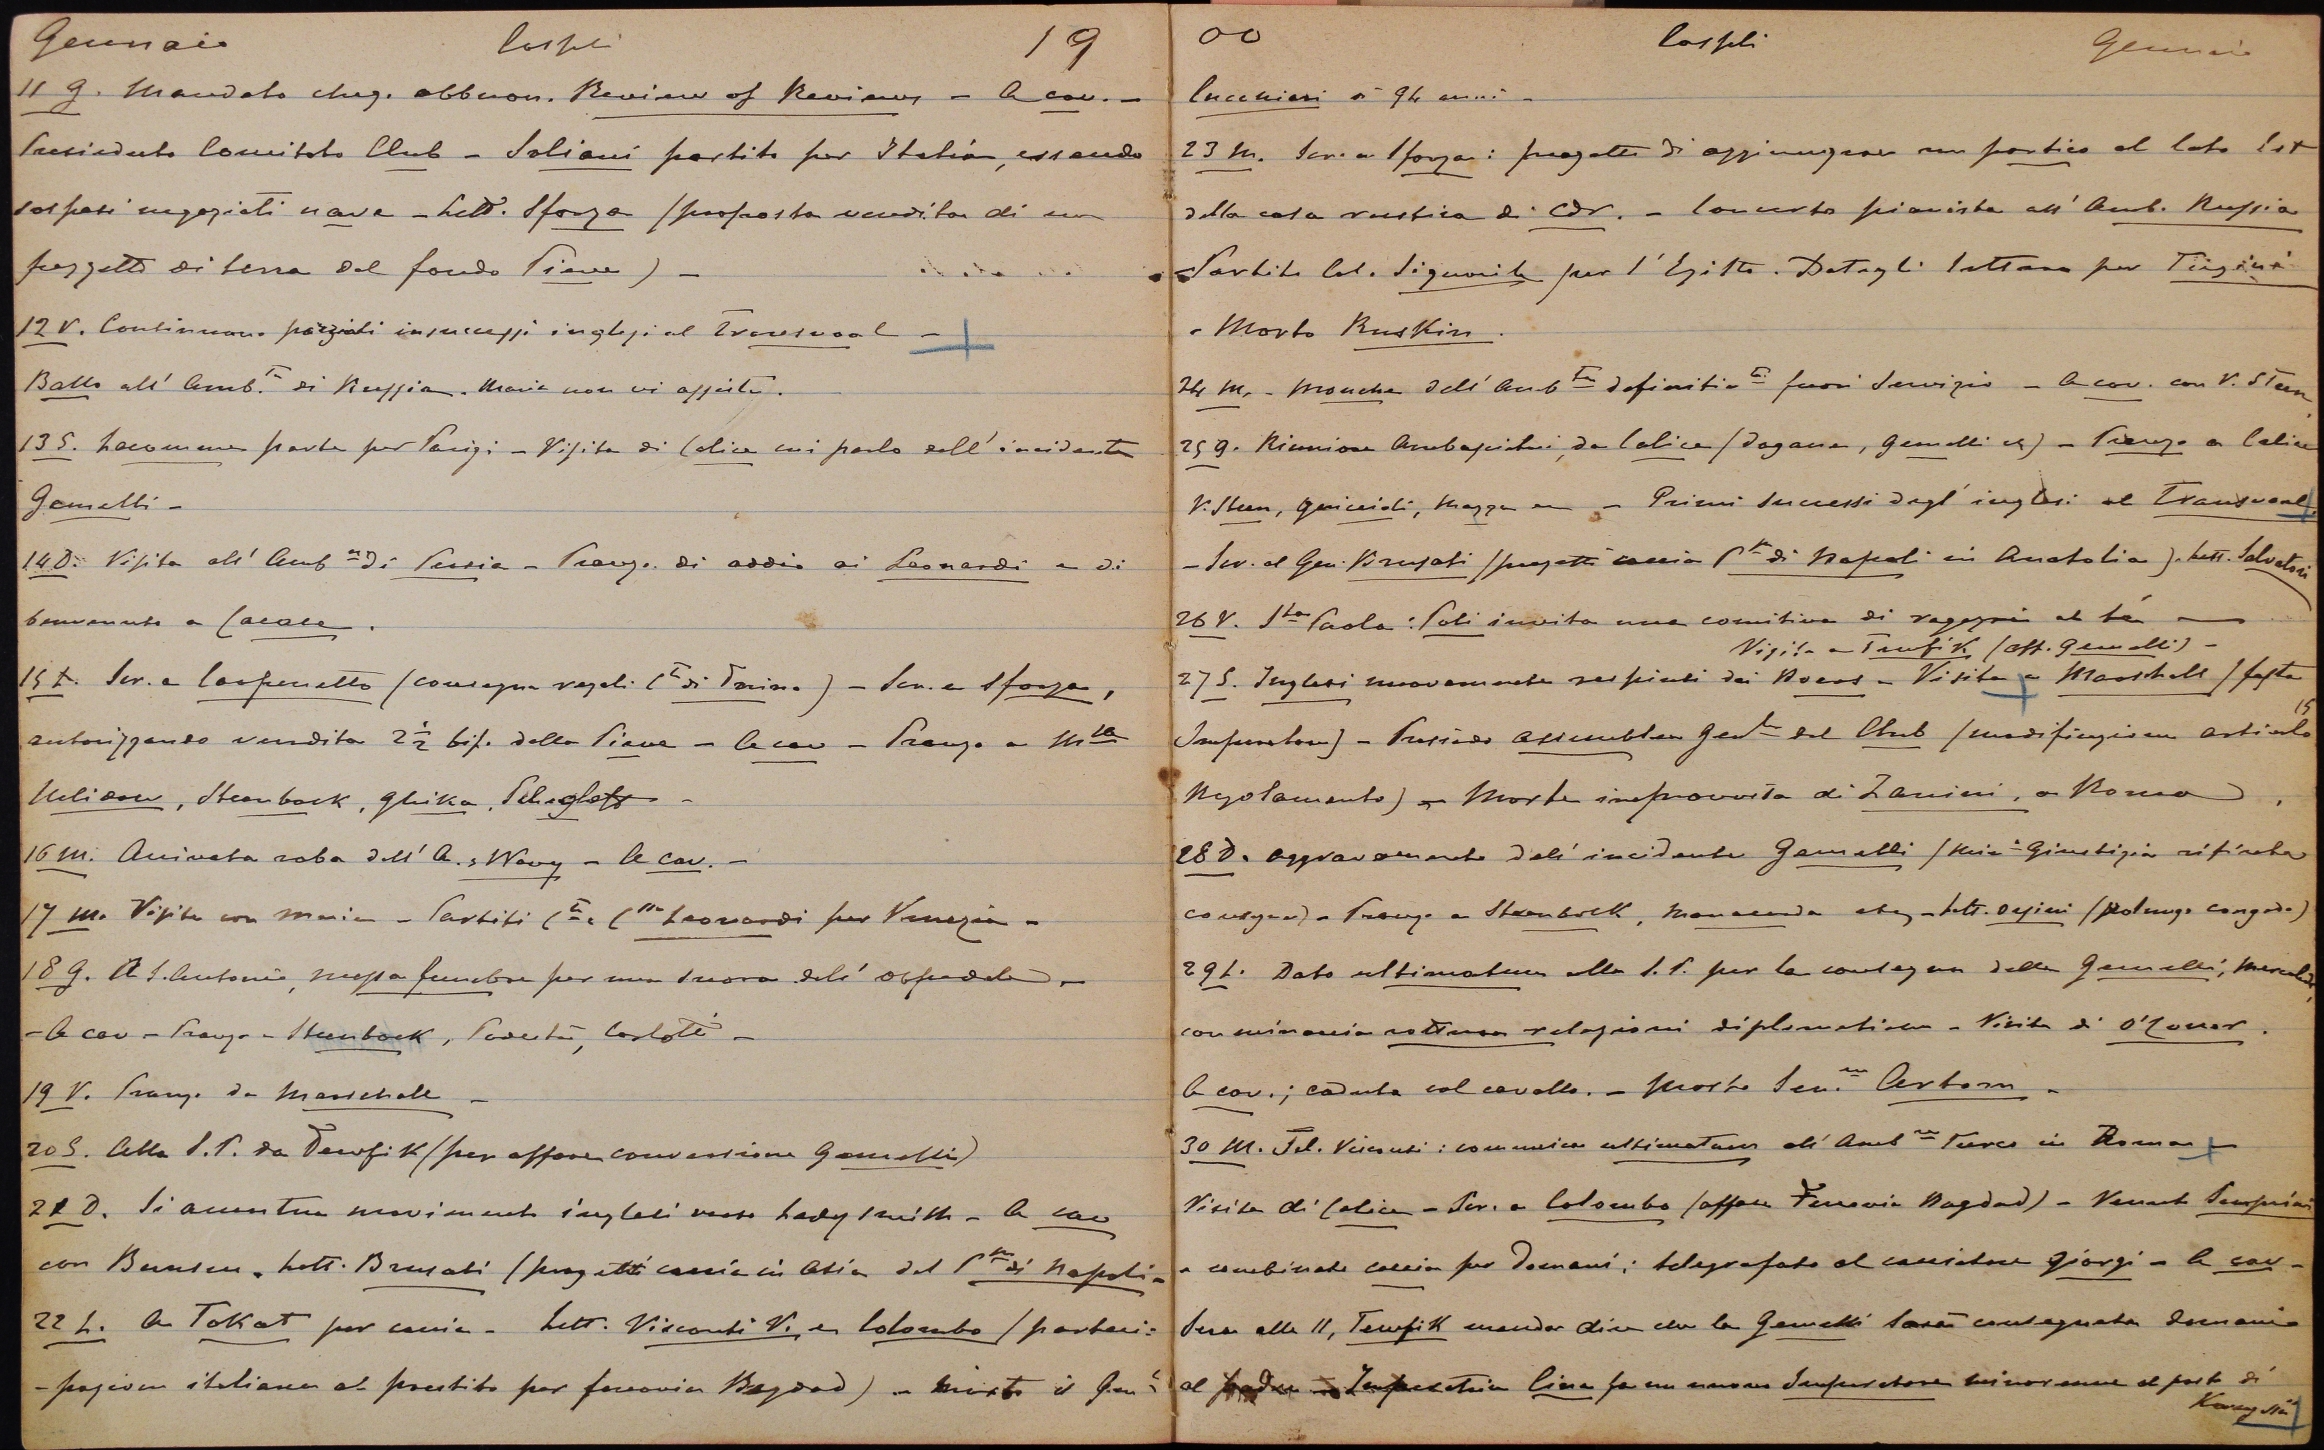 Gennaio Cospli 19
11 G. Mandato cheq. abbuon. Review of Reviews - A cav. -
Presieduto Comitato Club - Soliani partito per Italia, essendo
sospesi negoziati nave - Lett. Sforza (proposta vendita di un
pezzetto di terra del fondo Pieve) -
12 V. Continuano parziali insuccessi inglesi al Transvaal -
Ballo all' Amb.ta di Russia. Maria non vi assiste.
13 S. Lacomme parte per Parigi - Visita di Calice mi parla dell' incidente
Gemelli -
14 D. Visita all' Amb.re di Persia - Pranzo di addio ai Leonardi e di
benvenuto a Cacace.
15 L. Scr. a Carpenetto (consegna regali Cte di Torino) - Scr. a Sforza,
autorizzando vendita 2 1/2 bif. della Pieve - A cav - Pranzo a
Nelidow, Steenbock, Ghika,
16 M. Arrivata roba dell' A. & Navy - A cav. -
17 M. Visite con Maria - Partiti Cte e Cssa Leonardi per Venezia -
18 G. A S. Antonio, messa funebre per una suora dell' ospedale -
- A cav - Pranzo a Steenbock, Podestà,
19 V. Pranzo da Marschall -
20 S. Alla S.P. da Tewfik (per affare conversione Gemelli)
21 D. Si accentua movimento inglesi verso Ladysmith - A cav
con Bunsen. Lett. Brusati (progetti caccia in Asia del Pre di Napoli -
22 L. A Tokat per caccia - Lett. Visconti V. e Colombo (parteci=
- pazione italiana al prestito per ferrovia Bagdad) - Morto il Gen.l
00 Cospli Gennaio
Cucchiari di 94 anni -
23 M. Scr. a Sforza: progetti di aggiungere un portico al lato Est
della casa rustica di CdV. - Concerto pianista all' Amb. Russia
- Partito Col. Signorile per l' Egitto. Datogli lettera per
- Morto Ruskin.
24 M. - Mouche dell' Ambta definitivte fuori servizio - A cav. con V. Steen.
25 G. Riunione Ambasciatori da Calice (dogane, Gemelli etc) - Pranzo a Calice
V. Steen, Guiccioli, Mazza - Primi successi degl' inglesi al Transvaal
- Scr. al Gen. Brusati (progetti caccia Pre di Napoli in Anatolia). Lett. Salvatori
26 V. Sta Paola: Poli invita una comitiva di ragazzi al tè -
Visita a Tewfik (aff. Gemelli) -
27 S. Inglesi nuovamente respinti dai Boers - Visita a Marschall (festa
Imperatore) - Presiedo assemblea Genle del Club (modificazione articolo 15
Regolamento) - Morte improvvisa di Zanini, a Roma.
28 D. Aggravamento dell' incidente Gemelli ( Giustizia rifiuta
consegna) - Pranzo a Steenbock, - Lett. (prolungo congedo)
29 L. Dato ultimatum alla S.P. per la consegna della Gemelli, mercoledì,
con minaccia rottura relazioni diplomatiche - Visita di O'Conor.
A cav.; caduta col cavallo. - Morto Sen.re Artom -
30 M. Tel. Visconti: comunica ultimatum all' Ambre Turco in Roma -
Visita di Calice - Scr. a Colombo (affare Ferrovia Bagdad) - Venuto Semprini
e combinato caccia per domani; telegrafato al cacciatore Giorgi - A cav -
Sera alle 11, Tewfik manda dire che la Gemelli sarà consegnata domani -
al Imperatrice Cina fa un nuovo Imperatore minorenne al posto di